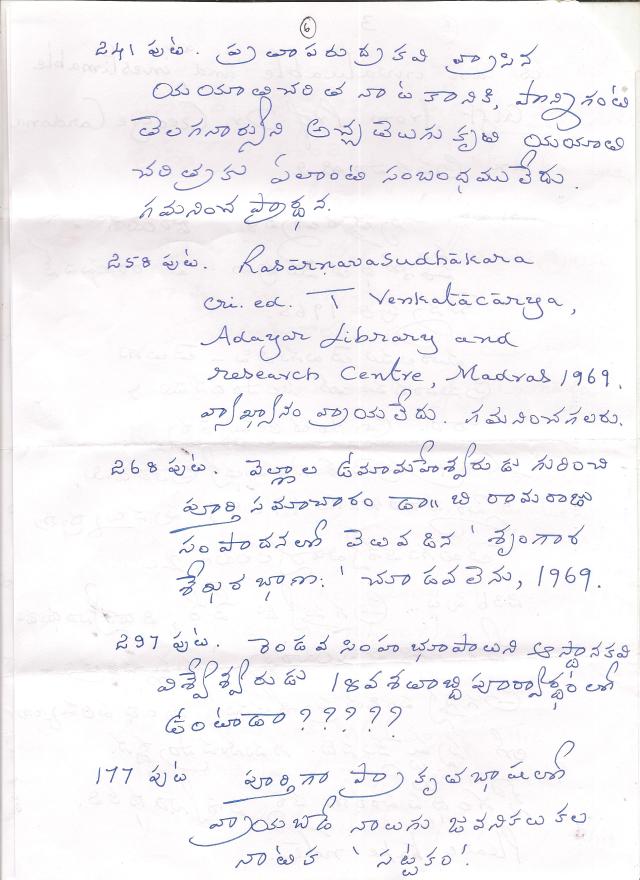 6
241 పుట. ప్రతాపరుద్రకవి వ్రాసిన
యయాతిచరిత నాటకానికి, పొన్నిగంటి
తెలగనార్యుని అచ్చ తెలుగు కృతి యయాతి
చరిత్రకు ఏలాంటి సంబంధములేదు.
గమనించ ప్రార్థన.
258 పుట. Rasārnavasudhākara
cri. ed. T Venkatācārya,
Adayar Library and
research Centre, Madras 1969.
వ్యాఖ్యానం వ్రాయలేదు. గమనించగలరు.
268 పుట. వెల్లాల ఉమామహేశ్వరుడు గురించి
పూర్తి సమాచారం డా॥ బి రామరాజు
సంపాదనలో వెలువడిన 'శృంగార
శేఖర భాణః' చూడవలెను, 1969.
297 పుట. రెండవ సింహభూపాలుని ఆస్థానకవి
విశ్వేశ్వరుడు 18వ శతాబ్ది పూర్వార్థంలో
ఉంటాడా ?????
177 పుట పూర్తిగా ప్రాకృతభాషలో
వ్రాయబడే నాలుగు జవనికలు కల
నాటిక 'సట్టకం'.